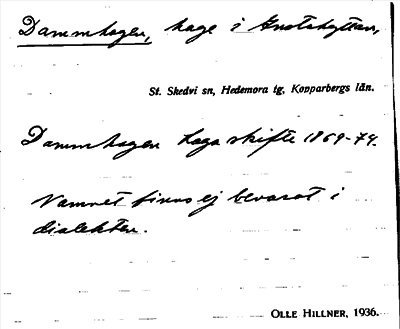 Dammhagen, hage i Gustshyttan,
St. Skedvi sn, Hedemora tg, Kopparbergs län.
Dammhagen Laga skifte 1869-74.
Namnet finns ej bevarat i
dialekten.
OLLE HILLNER, 1936.